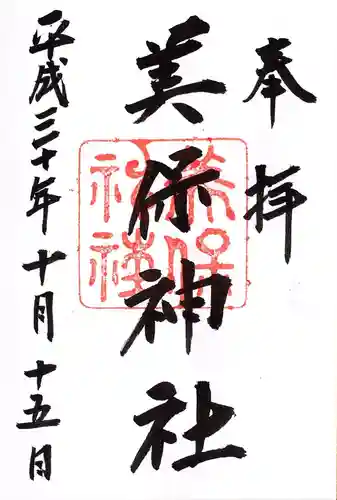 奉拝
美保神社
平成三十年十月十五日
美保
神社